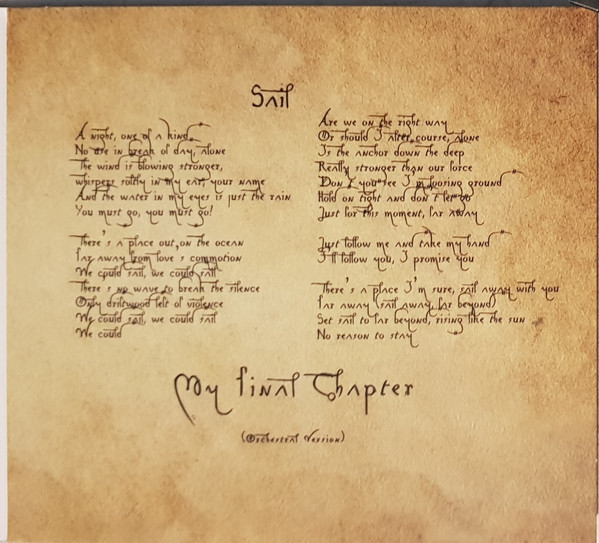 Sail
A night, one of a kind
No use in break of day, alone
The wind is blowing stronger,
whispers softly in my ear, your name
And the water in my eyes is just the rain
You must go, you must go!
There's a place out, on the ocean
far away from love's commotion
We could sail, we could sail
There's no wave to break the silence
Only driftwood left of violence
We could sail, we could sail
We could
Are we on the right way
Or should I alter course, alone
Is the anchor down the deep
Really stronger than our force
Don't you see I'm loosing ground
Hold on tight and don't let go
Just for this moment, far away
Just follow me and take my hand
I'll follow you, I promise you
There's a place I'm sure, sail away with you
far away (sail away, far beyond)
Set sail to far beyond, rising like the sun
No reason to stay
My final Chapter
(Orchestral Version)